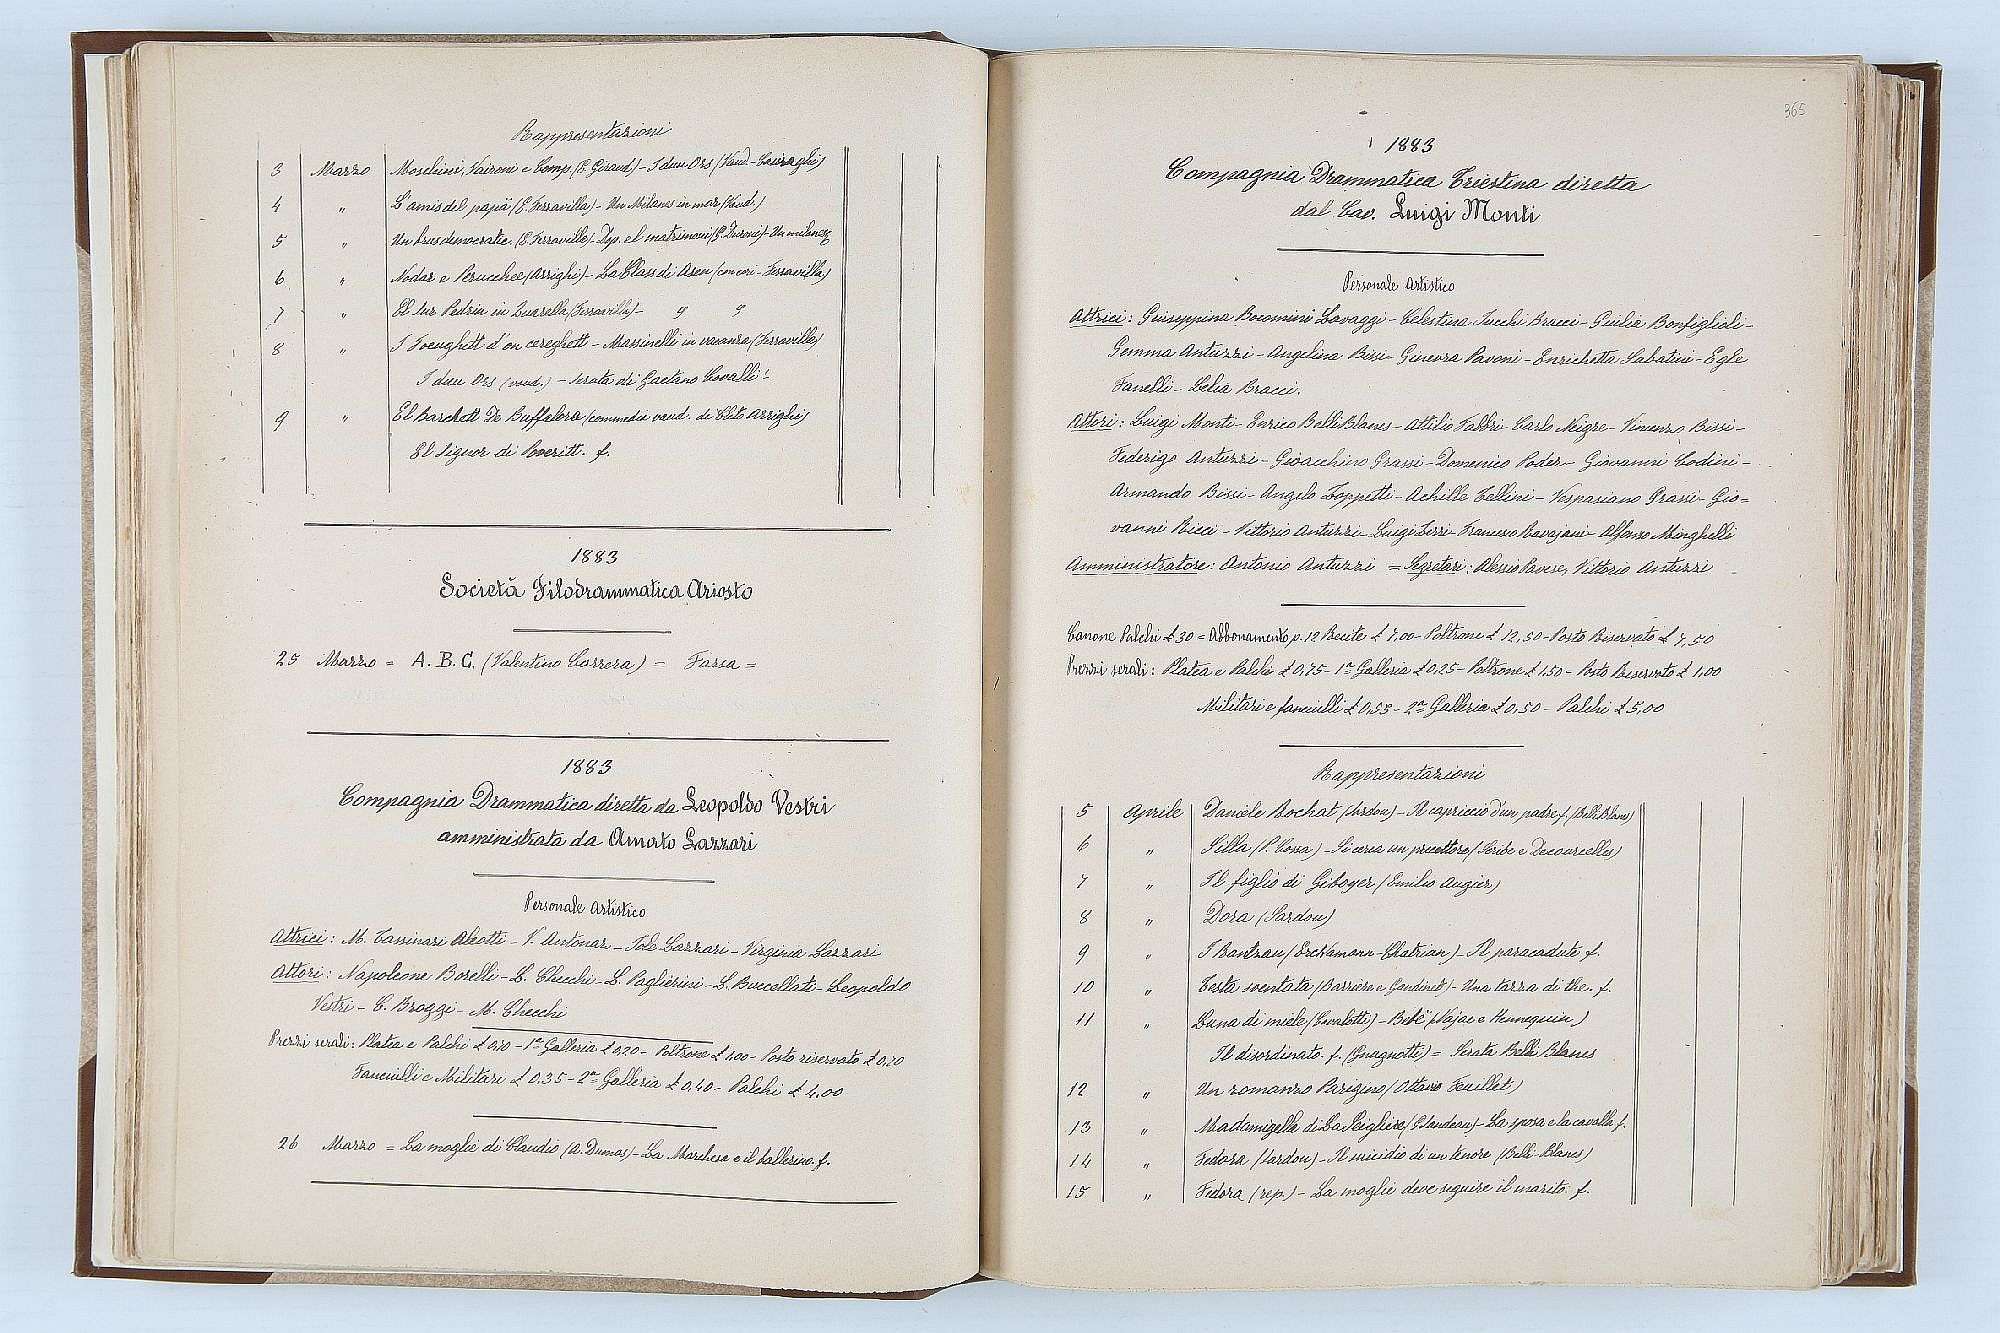 Rappresentazioni
3 Marzo Moschini, Vaironi e Comp. (E. Giraud) - I duu Ors (Vaud. - Cavraghi)
4 " L'amis del papà (E. Ferravilla) - Un Milanes in mar (Vaud.)
5 " Un brus democratic. (E. Ferravilla) - Dop. el matrimoni - Un milanes
6 " Nodar e Perucchee (Arrighi) - La Class di Asen (con cori - Ferravilla)
7 " El sur Pedrin in Quarella (Ferravilla) - " "
8 " I Foeughett d'on cereghett - Massinelli in vacanza (Ferravilla)
I duu Ors (vaud.) - Serata di Gaetano Cavalli!
9 " El Barchett de Buffalora (commedia vaud. di Cleto Arrighi)
El Signor di Poveritt. f.
1883
Società Filodrammatica Ariosto
25 Marzo = A.B.C. (Valentino Carrera) - Farsa =
1883
Compagnia Drammatica diretta da Leopoldo Vestri
amministrata da Amato Lazzari
Personale Artistico
Attrici: M. Tassinari Aleotti - V. Antonar - Iole Lazzari - Virginia Lazzari
Attori: Napoleone Borelli - L. Checchi - L. Paglierini - L. Buccellati - Leopoldo
Vestri - C. Broggi - M. Checchi
Prezzi serali: Platea e Palchi £ 0,70 - 1ª Galleria £ 0,20 - Poltrone £ 1,00 - Posto riservato £ 0,70
Fanciulli e Militari £ 0,35 - 2ª Galleria £ 0,40 - Palchi £ 4,00
26 Marzo = La moglie di Claudio (A. Dumas) - La Marchesa e il ballerino. f.
365
1883
Compagnia Drammatica Triestina diretta
dal Cav. Luigi Monti
Personale Artistico
Attrici: Giuseppina Boccomini Lavaggi - Celestina Bracci - Giulia Bonfiglioli -
Gemma Antuzzi - Angelina Bissi - Ginevra Pavoni - Enrichetta Sabatini - Egle
Fanelli - Lelia Bracci.
Attori: Luigi Monti - Enrico Belli Blanes - Attilio Fabbri - Carlo Neigre - Vincenzo Bissi -
Federigo Antuzzi - Gioacchino Grassi - Domenico Poder - Giovanni Codini -
Armando Bissi - Angelo Zoppetti - Achille Tellini - Vespasiano Grassi - Gio=
vanni Ricci - Vittorio Antuzzi - Luigi Lezzi - Francesco Ravajani - Alfonso Minghelli
Amministratore: Antonio Antuzzi = Segretari: Alessio Pavese, Vittorio Antuzzi
Canone Palchi £ 30 = Abbonamento p. 12 Recite £ 7,00 - Poltrone £ 12,50 - Posto Riservato £ 7,50
Prezzi serali: Platea e Palchi £ 0,75 - 1ª Galleria £ 0,25 - Poltrone £ 1,50 - Posto Riservato £ 1,00
Militari e fanciulli £ 0,55 - 2ª Galleria £ 0,50 - Palchi £ 5,00
Rappresentazioni
5 Aprile Daniele Rochat (Sardou) - Il capriccio d'un padre f. (Belli Blanes)
6 " Silla (P. Cossa) - Si cerca un precettore (Scribe e Decourcelles)
7 " Il figlio di Giboyer (Emilio Augier)
8 " Dora (Sardou)
9 " I Rantzau (Erckmann-Chatrian) - Il paracadute f.
10 " Testa sventata (Barriere e Gondinet) - Una tazza di the. f.
11 " Luna di miele (Cavalotti) - Bebè (Najac e Hennequin)
Il disordinato f. (Gnagnatti) = Serata Belli Blanes
12 " Un romanzo Parigino (Ottavio Feuillet)
13 " Madamigella di La Seiglière (G. Sandeau) - La sposa e la cavalla f.
14 " Fedora (Sardou) - Il suicidio di un tenore (Belli-Blanes)
15 " Fedora (rep.) - La moglie deve seguire il marito. f.